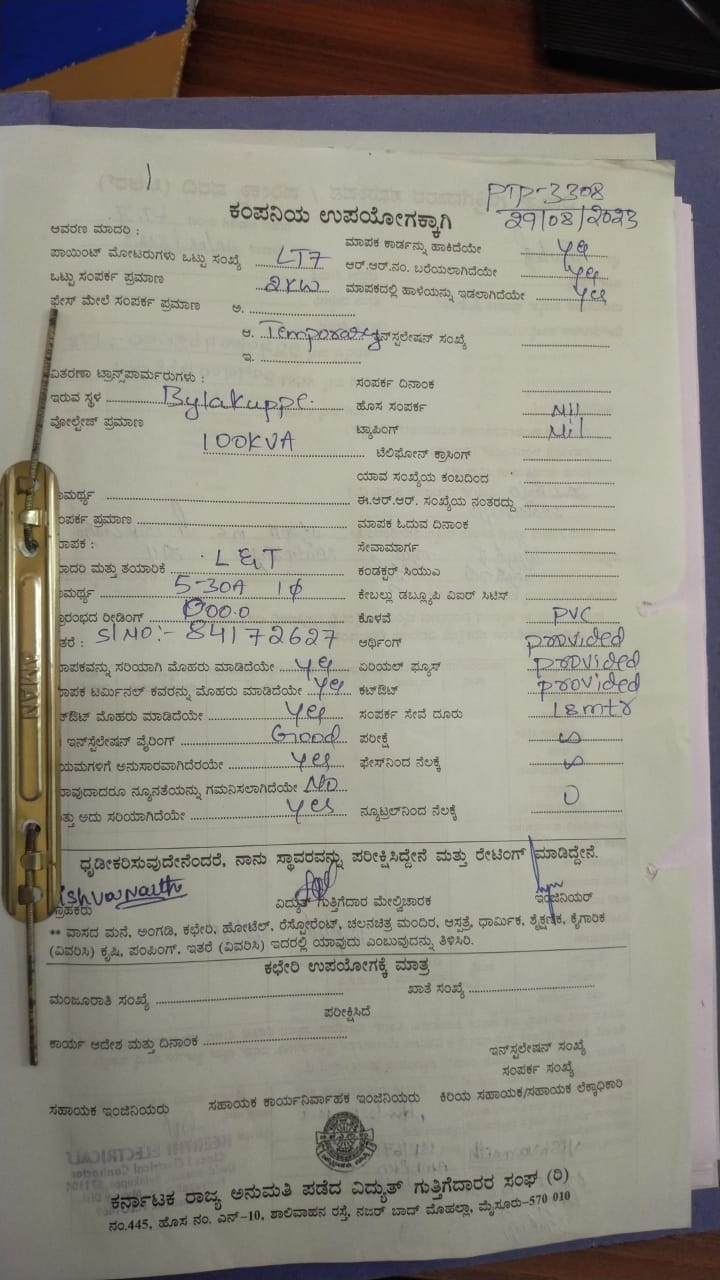 PTP-3308
ಕಂಪನಿಯ ಉಪಯೋಗಕ್ಕಾಗಿ 29/08/2023
ಆವರಣ ಮಾದರಿ : ಮಾಪಕ ಕಾರ್ಡನ್ನು ಹಾಕಿದೆಯೇ yes
ಪಾಯಿಂಟ್ ಮೋಟರುಗಳು ಒಟ್ಟು ಸಂಖ್ಯೆ LT7 ಆರ್.ಆರ್.ನಂ. ಬರೆಯಲಾಗಿದೆಯೇ yes
ಒಟ್ಟು ಸಂಪರ್ಕ ಪ್ರಮಾಣ 2KW ಮಾಪಕದಲ್ಲಿ ಹಾಳೆಯನ್ನು ಇಡಲಾಗಿದೆಯೇ yes
ಫೇಸ್ ಮೇಲೆ ಸಂಪರ್ಕ ಪ್ರಮಾಣ ಅ.
ಆ. Temporary ಇನ್‌ಸ್ಟಲೇಷನ್ ಸಂಖ್ಯೆ
ಇ.
ವಿತರಣಾ ಟ್ರಾನ್ಸ್‌ಪಾರ್ಮರುಗಳು : ಸಂಪರ್ಕ ದಿನಾಂಕ
ಇರುವ ಸ್ಥಳ Bylakuppe. ಹೊಸ ಸಂಪರ್ಕ Nil
ವೋಲ್ಟೇಜ್ ಪ್ರಮಾಣ ಟ್ಯಾಪಿಂಗ್ Nil
100KVA ಟೆಲಿಫೋನ್ ಕ್ರಾಸಿಂಗ್
ಯಾವ ಸಂಖ್ಯೆಯ ಕಂಬದಿಂದ
ಸಾಮರ್ಥ್ಯ ಈ.ಆರ್.ಆರ್. ಸಂಖ್ಯೆಯ ನಂತರದ್ದು
ಸಂಪರ್ಕ ಪ್ರಮಾಣ ಮಾಪಕ ಓದುವ ದಿನಾಂಕ
ಮಾಪಕ : ಸೇವಾಮಾರ್ಗ
ಮಾದರಿ ಮತ್ತು ತಯಾರಿಕೆ L & T ಕಂಡಕ್ಟರ್ ಸಿಯುಎ
ಸಾಮರ್ಥ್ಯ 5-30A 1φ ಕೇಬಲ್ಲು ಡಬ್ಲ್ಯೂಪಿ ವಿಐರ್ ಸಿಟಿಸ್
ಪ್ರಾರಂಭದ ರೀಡಿಂಗ್ 000.0 ಕೊಳವೆ PVC
ಇತರೆ : Sl NO:- 84172627 ಅರ್ಥಿಂಗ್ provided
ಮಾಪಕವನ್ನು ಸರಿಯಾಗಿ ಮೊಹರು ಮಾಡಿದೆಯೇ yes ಏರಿಯಲ್ ಫ್ಯೂಸ್ provided
ಮಾಪಕ ಟರ್ಮಿನಲ್ ಕವರನ್ನು ಮೊಹರು ಮಾಡಿದೆಯೇ yes ಕಟ್‌ಔಟ್ provided
ಕಟ್‌ಔಟ್ ಮೊಹರು ಮಾಡಿದೆಯೇ yes ಸಂಪರ್ಕ ಸೇವೆ ದೂರು 18mtr
ಇನ್‌ಸ್ಟೆಲೇಷನ್ ವೈರಿಂಗ್ Good ಪರೀಕ್ಷೆ ∞
ನಿಯಮಗಳಿಗೆ ಅನುಸಾರವಾಗಿದೆರಯೇ yes ಫೇಸ್‌ನಿಂದ ನೆಲಕ್ಕೆ ∞
ಯಾವುದಾದರೂ ನ್ಯೂನತೆಯನ್ನು ಗಮನಿಸಲಾಗಿದೆಯೇ No
ಮತ್ತು ಅದು ಸರಿಯಾಗಿದೆಯೇ yes ನ್ಯೂಟ್ರಲ್‌ನಿಂದ ನೆಲಕ್ಕೆ 0
ಧೃಡೀಕರಿಸುವುದೇನೆಂದರೆ, ನಾನು ಸ್ಥಾವರವನ್ನು ಪರೀಕ್ಷಿಸಿದ್ದೇನೆ ಮತ್ತು ರೇಟಿಂಗ್ ಮಾಡಿದ್ದೇನೆ.
ಗ್ರಾಹಕರು ವಿದ್ಯುತ್ ಗುತ್ತಿಗೆದಾರ ಮೇಲ್ವಿಚಾರಕ ಇಂಜಿನಿಯರ್
** ವಾಸದ ಮನೆ, ಅಂಗಡಿ, ಕಛೇರಿ, ಹೋಟೆಲ್, ರೆಸ್ಟೋರೆಂಟ್, ಚಲನಚಿತ್ರ ಮಂದಿರ, ಆಸ್ಪತ್ರೆ, ಧಾರ್ಮಿಕ, ಶೈಕ್ಷಣಿಕ, ಕೈಗಾರಿಕ
(ವಿವರಿಸಿ) ಕೃಷಿ, ಪಂಪಿಂಗ್, ಇತರೆ (ವಿವರಿಸಿ) ಇದರಲ್ಲಿ ಯಾವುದು ಎಂಬುವುದನ್ನು ತಿಳಿಸಿರಿ.
ಕಛೇರಿ ಉಪಯೋಗಕ್ಕೆ ಮಾತ್ರ
ಮಂಜೂರಾತಿ ಸಂಖ್ಯೆ ಖಾತೆ ಸಂಖ್ಯೆ
ಪರೀಕ್ಷಿಸಿದೆ
ಕಾರ್ಯ ಆದೇಶ ಮತ್ತು ದಿನಾಂಕ
ಇನ್‌ಸ್ಟಲೇಷನ್ ಸಂಖ್ಯೆ
ಸಂಪರ್ಕ ಸಂಖ್ಯೆ
ಸಹಾಯಕ ಇಂಜಿನಿಯರು ಸಹಾಯಕ ಕಾರ್ಯನಿರ್ವಾಹಕ ಇಂಜಿನಿಯರು ಕಿರಿಯ ಸಹಾಯಕ/ಸಹಾಯಕ ಲೆಕ್ಕಾಧಿಕಾರಿ
ಕರ್ನಾಟಕ ರಾಜ್ಯ ಅನುಮತಿ ಪಡೆದ ವಿದ್ಯುತ್ ಗುತ್ತಿಗೆದಾರರ ಸಂಘ (ರಿ)
ನಂ.445, ಹೊಸ ನಂ. ಎನ್-10, ಶಾಲಿವಾಹನ ರಸ್ತೆ, ನಜರ್ ಬಾದ್ ಮೊಹಲ್ಲಾ, ಮೈಸೂರು-570 010